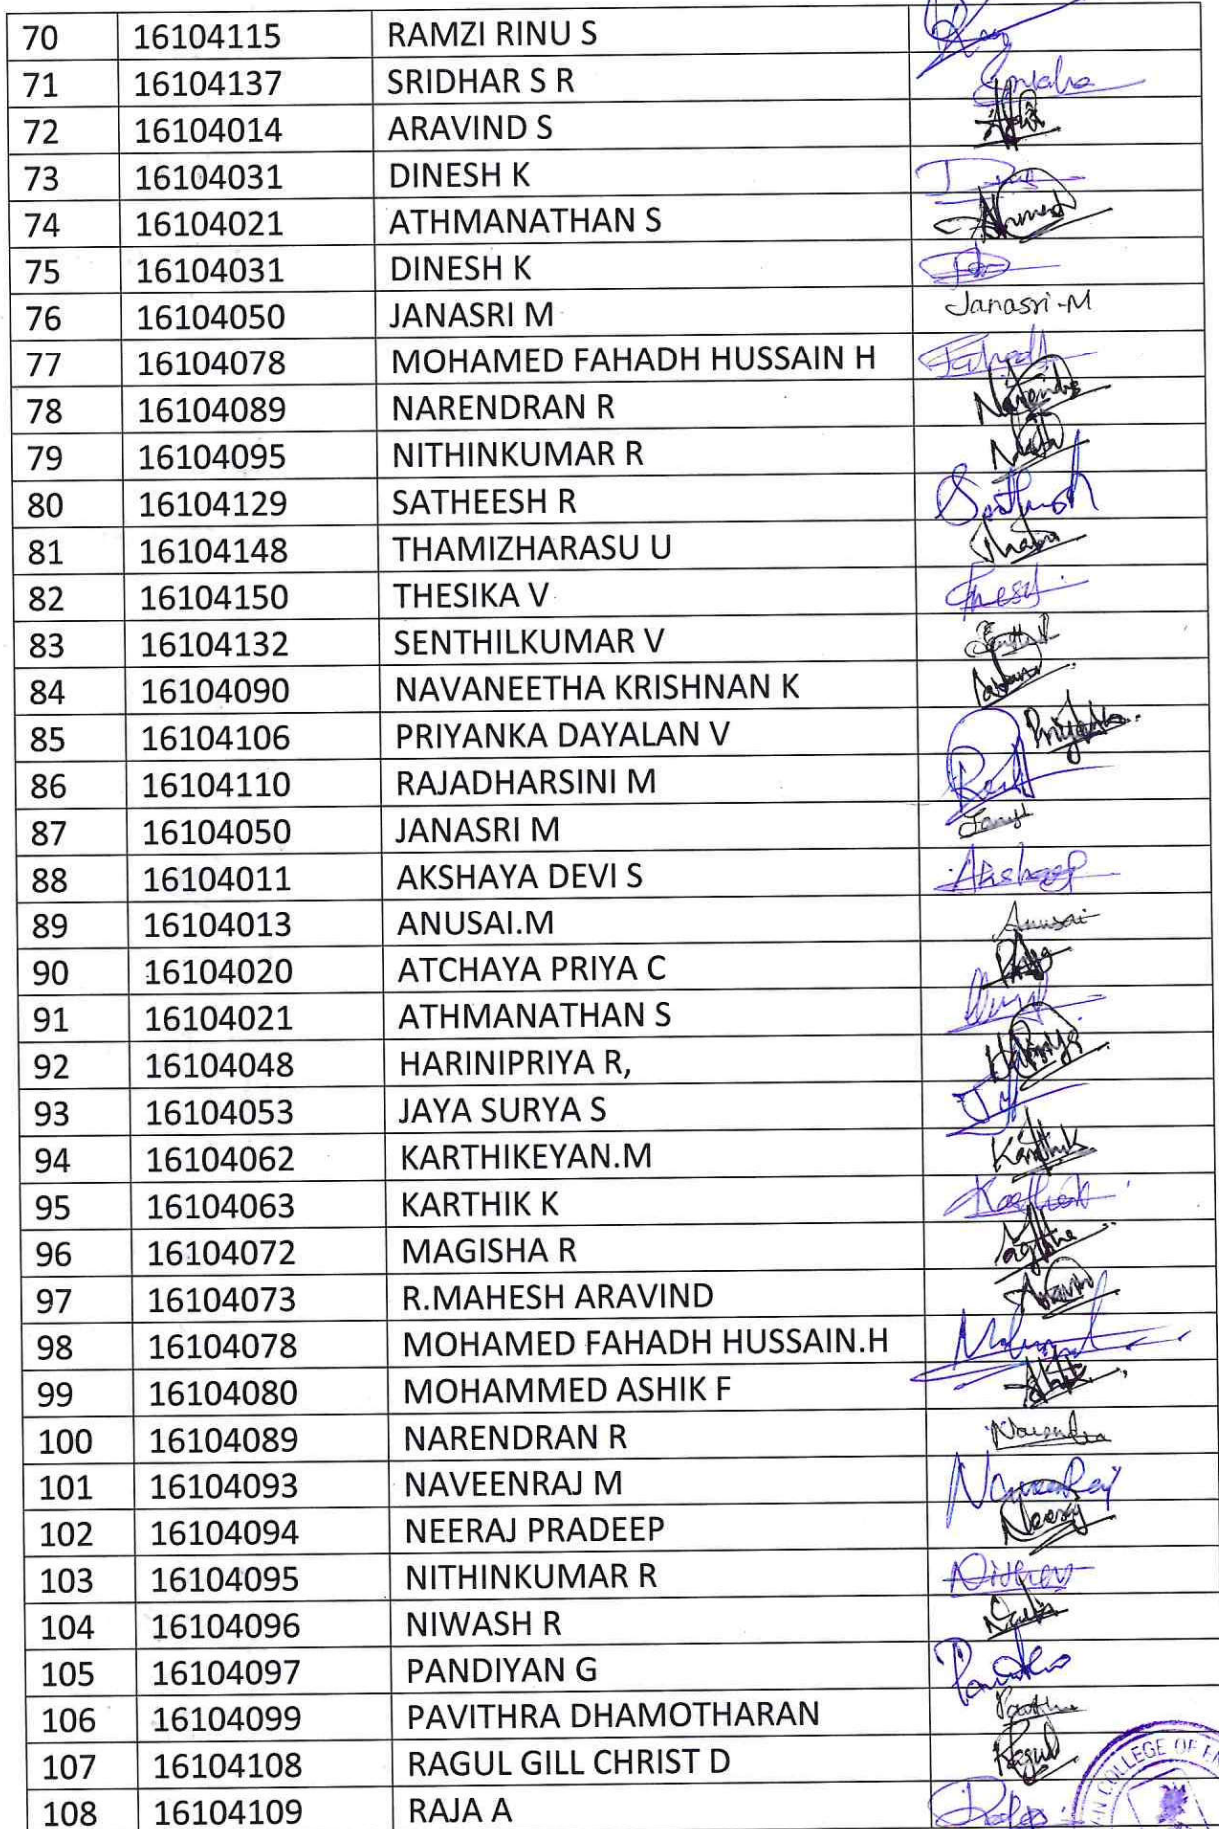 70 16104115 RAMZI RINU S
71 16104137 SRIDHAR S R
72 16104014 ARAVIND S
73 16104031 DINESH K
74 16104021 ATHMANATHAN S
75 16104031 DINESH K
76 16104050 JANASRI M Janasri-M
77 16104078 MOHAMED FAHADH HUSSAIN H Fahadh
78 16104089 NARENDRAN R
79 16104095 NITHINKUMAR R
80 16104129 SATHEESH R
81 16104148 THAMIZHARASU U
82 16104150 THESIKA V
83 16104132 SENTHILKUMAR V
84 16104090 NAVANEETHA KRISHNAN K
85 16104106 PRIYANKA DAYALAN V
86 16104110 RAJADHARSINI M
87 16104050 JANASRI M
88 16104011 AKSHAYA DEVI S
89 16104013 ANUSAI.M Anusai
90 16104020 ATCHAYA PRIYA C
91 16104021 ATHMANATHAN S
92 16104048 HARINIPRIYA R,
93 16104053 JAYA SURYA S
94 16104062 KARTHIKEYAN.M Karthik
95 16104063 KARTHIK K
96 16104072 MAGISHA R
97 16104073 R.MAHESH ARAVIND
98 16104078 MOHAMED FAHADH HUSSAIN.H
99 16104080 MOHAMMED ASHIK F
100 16104089 NARENDRAN R
101 16104093 NAVEENRAJ M NaveenRaj
102 16104094 NEERAJ PRADEEP Neeraj
103 16104095 NITHINKUMAR R
104 16104096 NIWASH R
105 16104097 PANDIYAN G
106 16104099 PAVITHRA DHAMOTHARAN
107 16104108 RAGUL GILL CHRIST D Ragul
108 16104109 RAJA A
COLLEGE OF